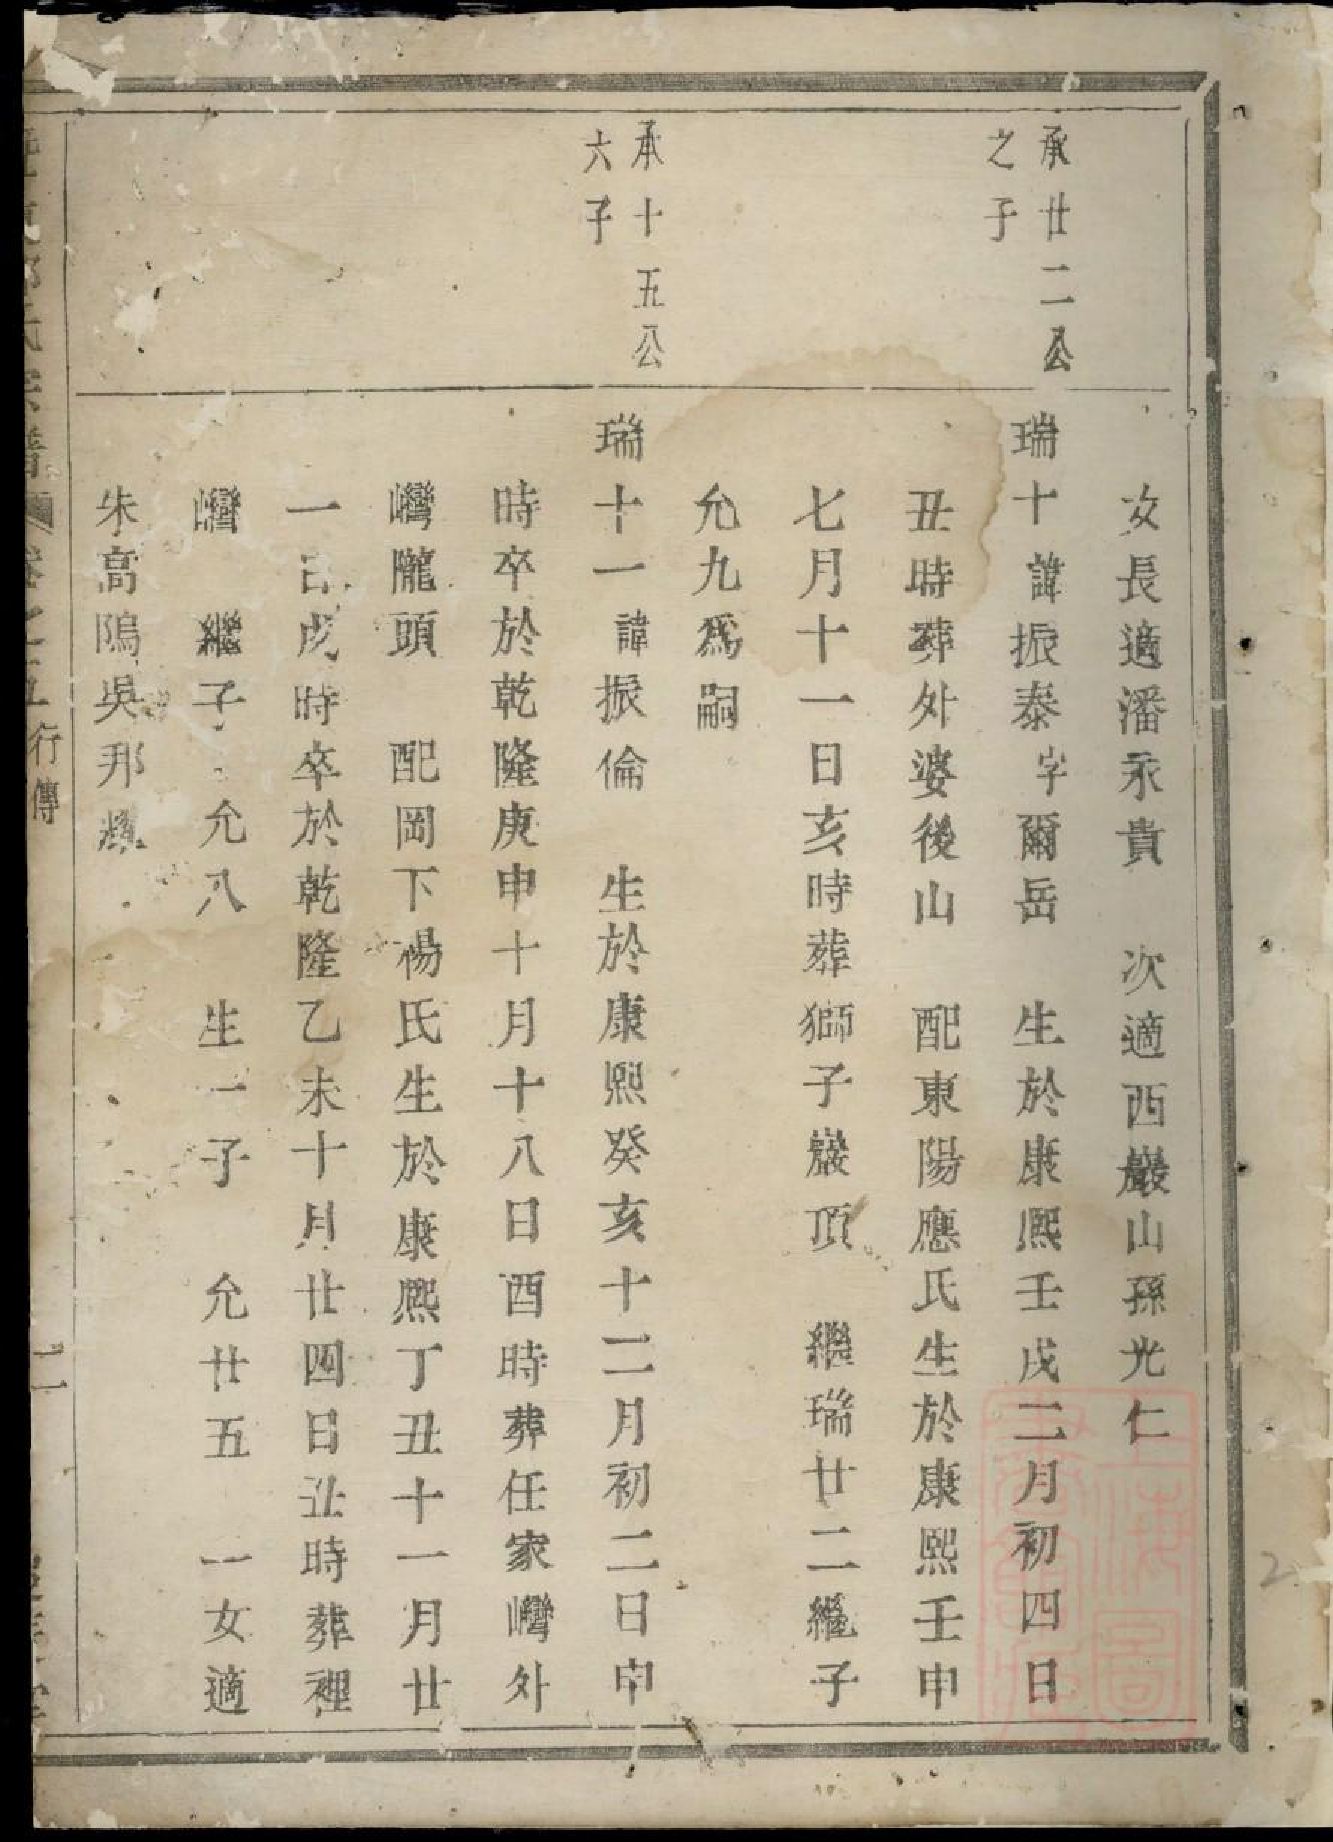 女長適潘永貴　次適西巖山孫光仁
承廿二公
之子
瑞十諱振泰字爾岳　生於康熙壬戌二月初四日
丑時葬外婆後山　配東陽應氏生於康熙壬申
七月十一日亥時葬獅子巖頂　繼瑞廿二繼子
允九爲嗣
承十五公
六子
瑞十一諱振倫　生於康熙癸亥十二月初二日申
時卒於乾隆庚申十月十八日酉時葬任家巒外
巒隴頭　配岡下楊氏生於康熙丁丑十一月廿
一日戌時卒於乾隆乙未十月廿四日丑時葬裡
巒　繼子允八　生一子　允廿五　一女適
朱高隖吳邦
宗譜
卷之五
行傳
二
上海圖書館藏
2